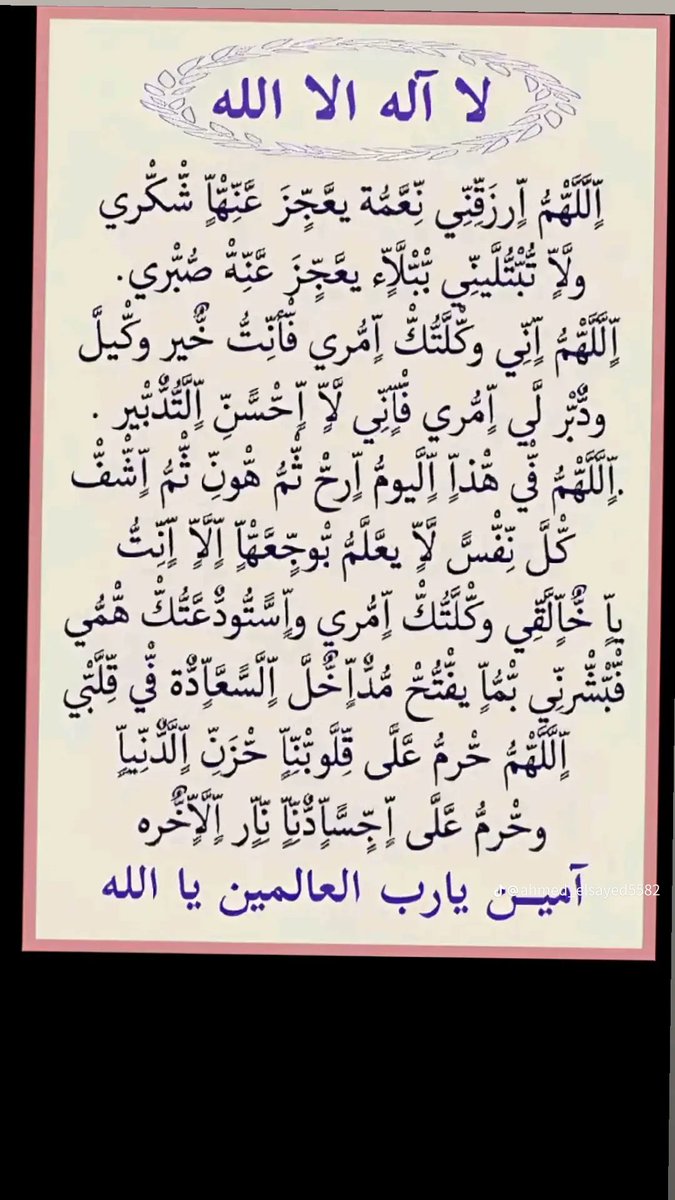 لا آله الا الله
اٍّلَلَّهّْمُّ اٍّرزَقِّنِّي نِّعَّمُّة يعَّجٍّزَ عَّنِّهّْاٍّ شّْكّْري
ولَّاٍّ تُّبّْتُّلَّينِّي بّْبّْلَّاٍّء يعَّجٍّزَ عَّنِّهّْ صُّبّْري.
اٍّلَلَّهّْمُّ اٍّنِّي وكّْلَّتُّكّْ اٍّمُّري فّْأنِّتُّ خٌّير وكّْيلَّ
ودٌّبّْر لَّي اٍّمُّري فّْإٍّنِّي لَّاٍّ اٍّحّْسًّنِّ اٍّلَّتُّدٌّبّْير .
.اٍّلَلَّهّْمُّ فّْي هّْذاٍّ اٍّلَّيومُّ اٍّرحّْ ثّْمُّ هّْونِّ ثّْمُّ اٍّشّْفّْ
كّْلَّ نِّفّْسًّ لَّاٍّ يعَّلَّمُّ بّْوجٍّعَّهّْاٍّ اٍّلَّاٍّ اٍّنِّتُّ
ياٍّ خٌّاٍّلَّقِّي وكّْلَّتُّكّْ اٍّمُّري واٍّسًّتُّودٌّعَّتُّكّْ هّْمُّي
فّْبّْشّْرنِّي بّْمُّاٍّ يفّْتُّحّْ مُّدٌّاٍّخٌّلَّ اٍّلَّسًّعَّاٍّدٌّة فّْي قِّلَّبّْي
اٍّلَلَّهّْمُّ حّْرمُّ عَّلَّى قِّلَّوبّْنِّاٍّ حّْزَنِّ اٍّلَّدٌّنِّياٍّ
وحّْرمُّ عَّلَّى اٍّجٍّسًّاٍّدٌّنِّاٍّ نِّاٍّر اٍّلَّاٍّخٌّره
آميـن يارب العالمين يا الله
@ahmed7elsayed5582